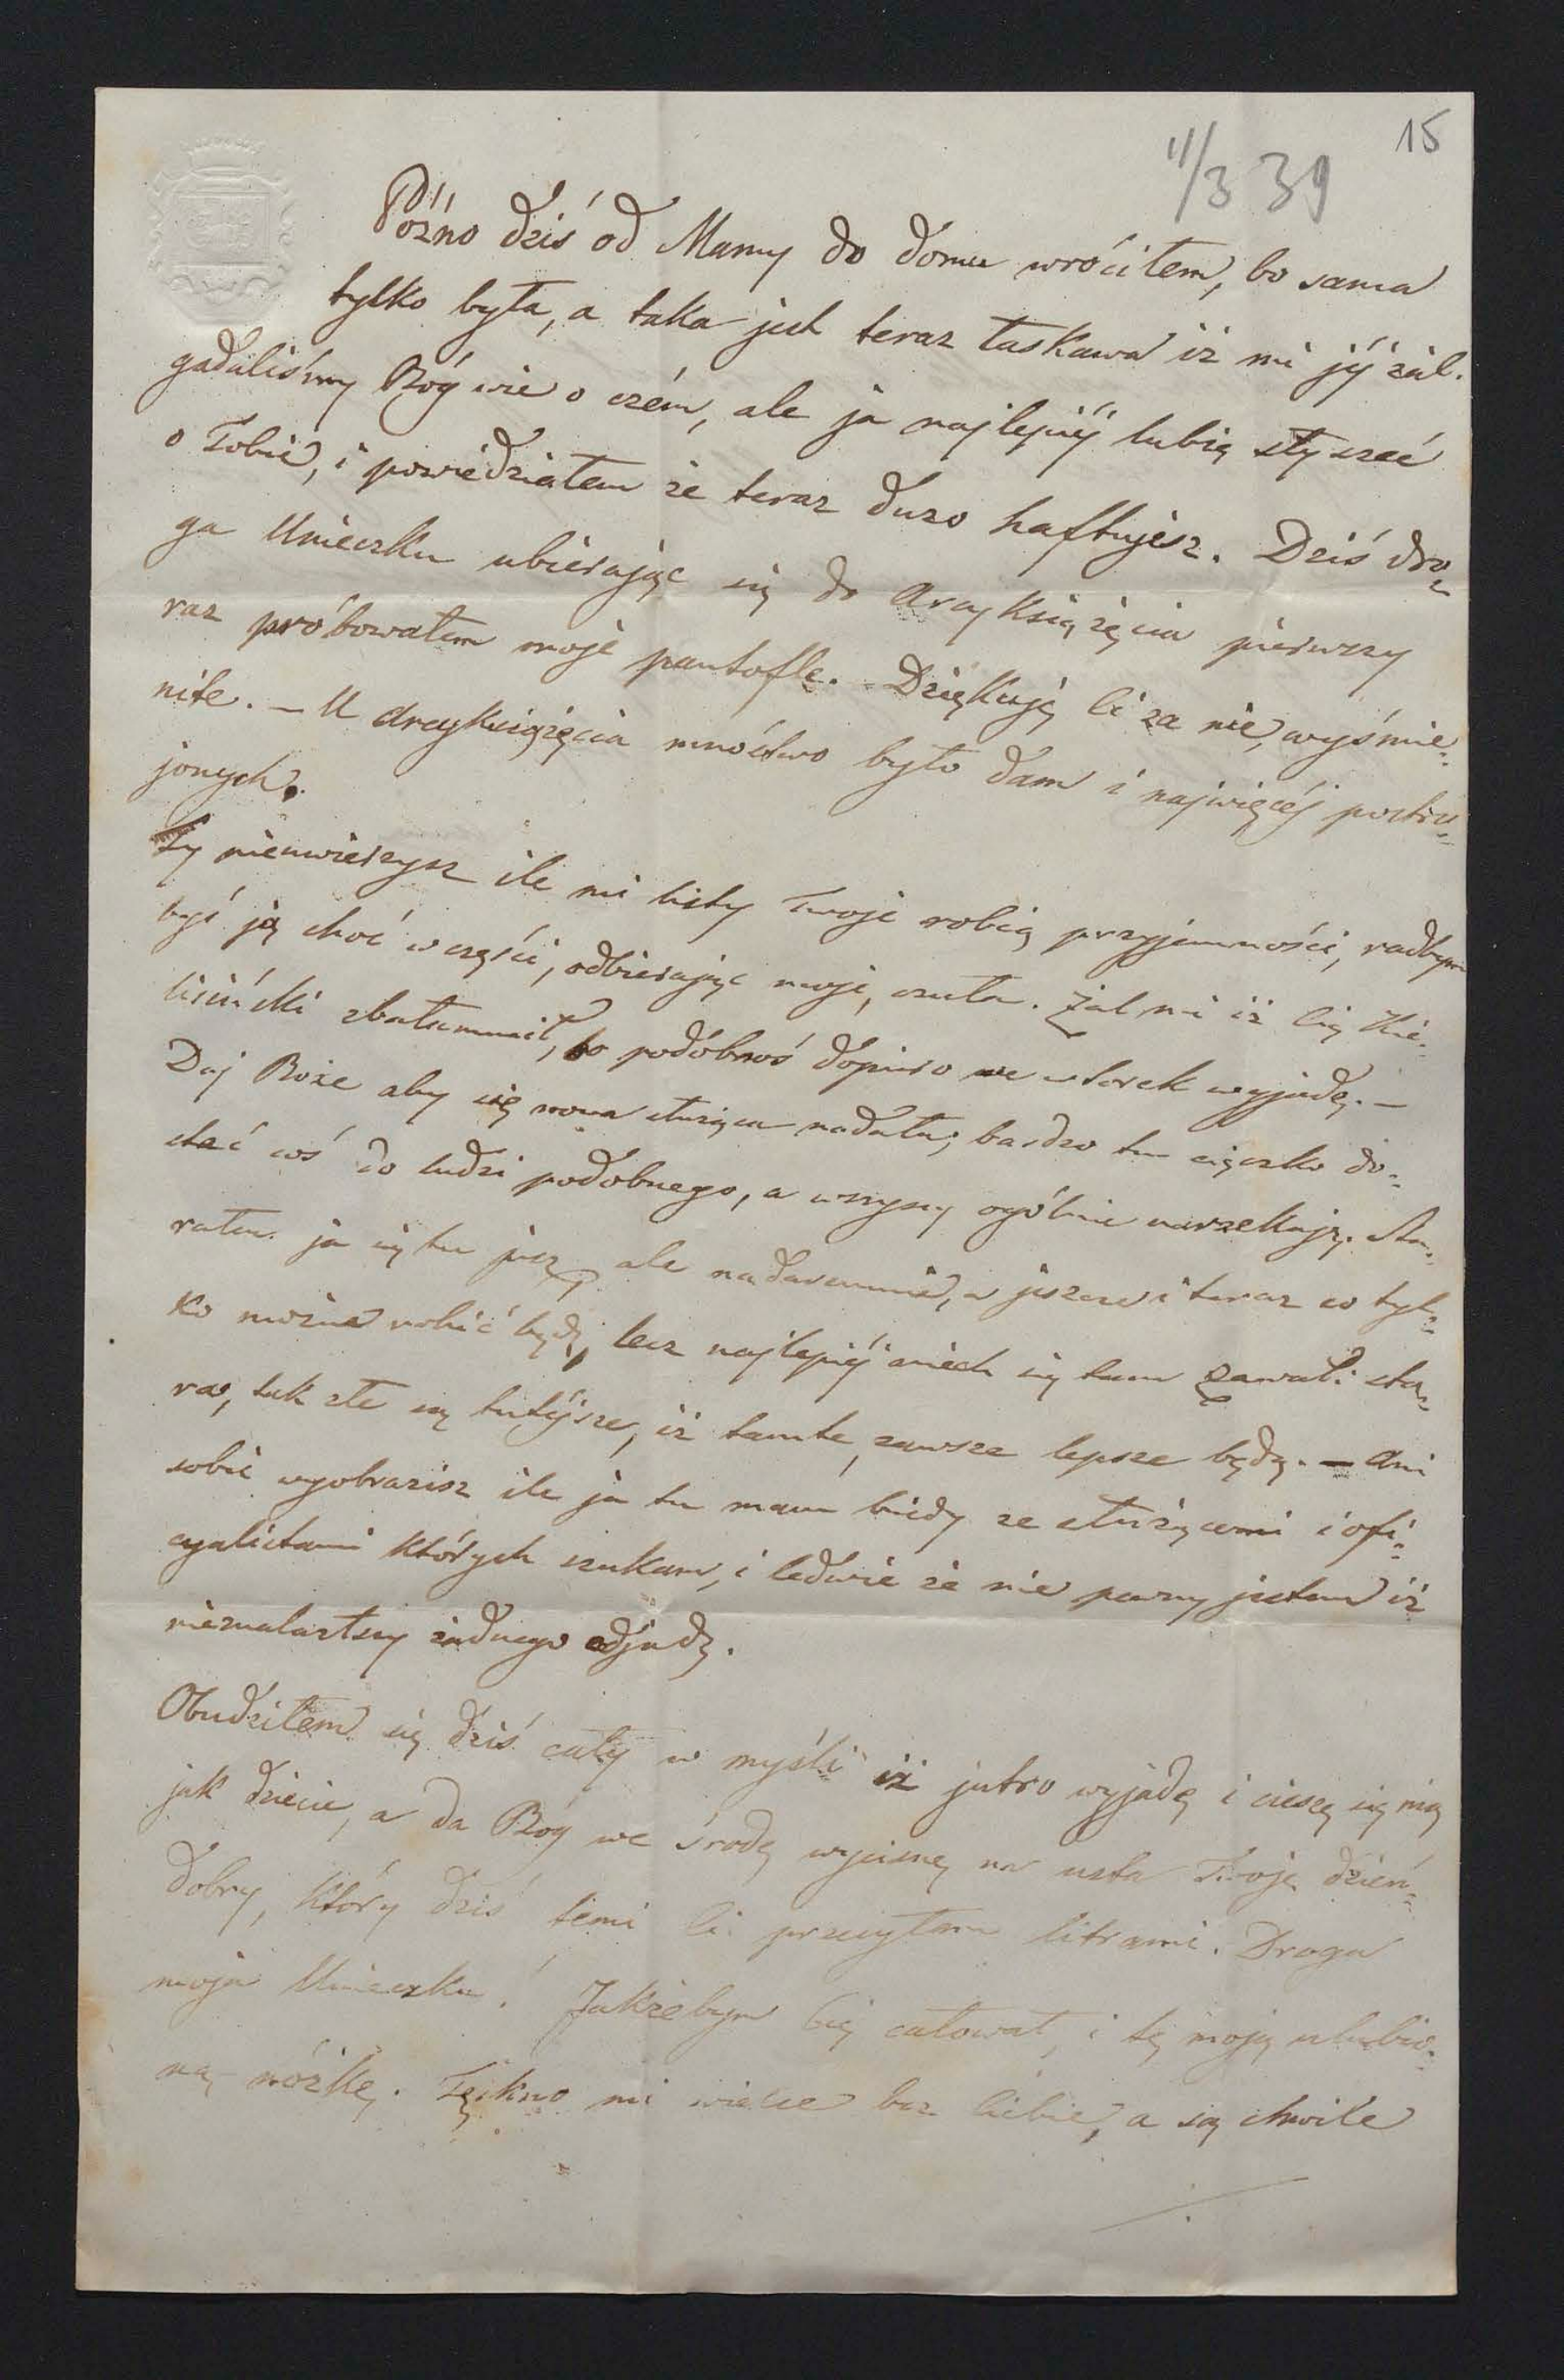 15
11/3 39
Późno dziś od Mamy do domu wróciłem, bo sama
tylko była, a taka jest teraz łaskawa iż mi jéj żal.
gadaliśmy Bóg wie o czém, ale ja najlepiéj lubię słyszeć
o Tobie, i powiedziałem że teraz dużo haftujesz. Dziś dro=
ga Unieczku ubierając się do Arcyksiążęcia pierwszy
raz próbowałem moje pantofle. Dziękuję Ci za nie, wyśmie=
nite. – U Arcyksiążęcia mnóstwo było dam i najwięcéj postru=
jonych.
Ty nieuwierzysz ile mi listy Twoje robią przyjemności, radbym
byś ją choć w części, odbierając moje, czuła. Żal mi iż Cię
zbałamucił, bo podobnoś dopiero we wtorek wyjadę. –
Daj Boże aby się nowa służąca nadała; bardzo tu ciężko do=
stać coś do ludzi podobnego, a wszyscy ogólnie narzekają. Sta=
rałem ja się tu już, ale nadaremnie, a jeszcze i teraz co tyl=
ko można robić będę, lecz najlepiéj niech się tam zawali sta=
ra, tak złe są tutéjsze, iż tamte, zawsze lepsze będą. – Ani
sobie wyobrazisz ile ja tu mam biedy ze służącemi i ofi=
cyalistami których szukam, i ledwie że nie pewny jestem iż
nieznalazłszy żadnego odjadę.
Obudziłem się dziś cały w myśli iż jutro wyjadę i cieszę się nią
jak dziecie, a da Bóg we środę wycisnę na usta Twoje dzień=
dobry, który dziś temi Ci przesyłam literami. Droga
moja Unieczku! Jakżebym Cię całował, i tę moją ulubio=
ną nóżkę. Tęskno mi wiecze bez Ciebie, a są chwile